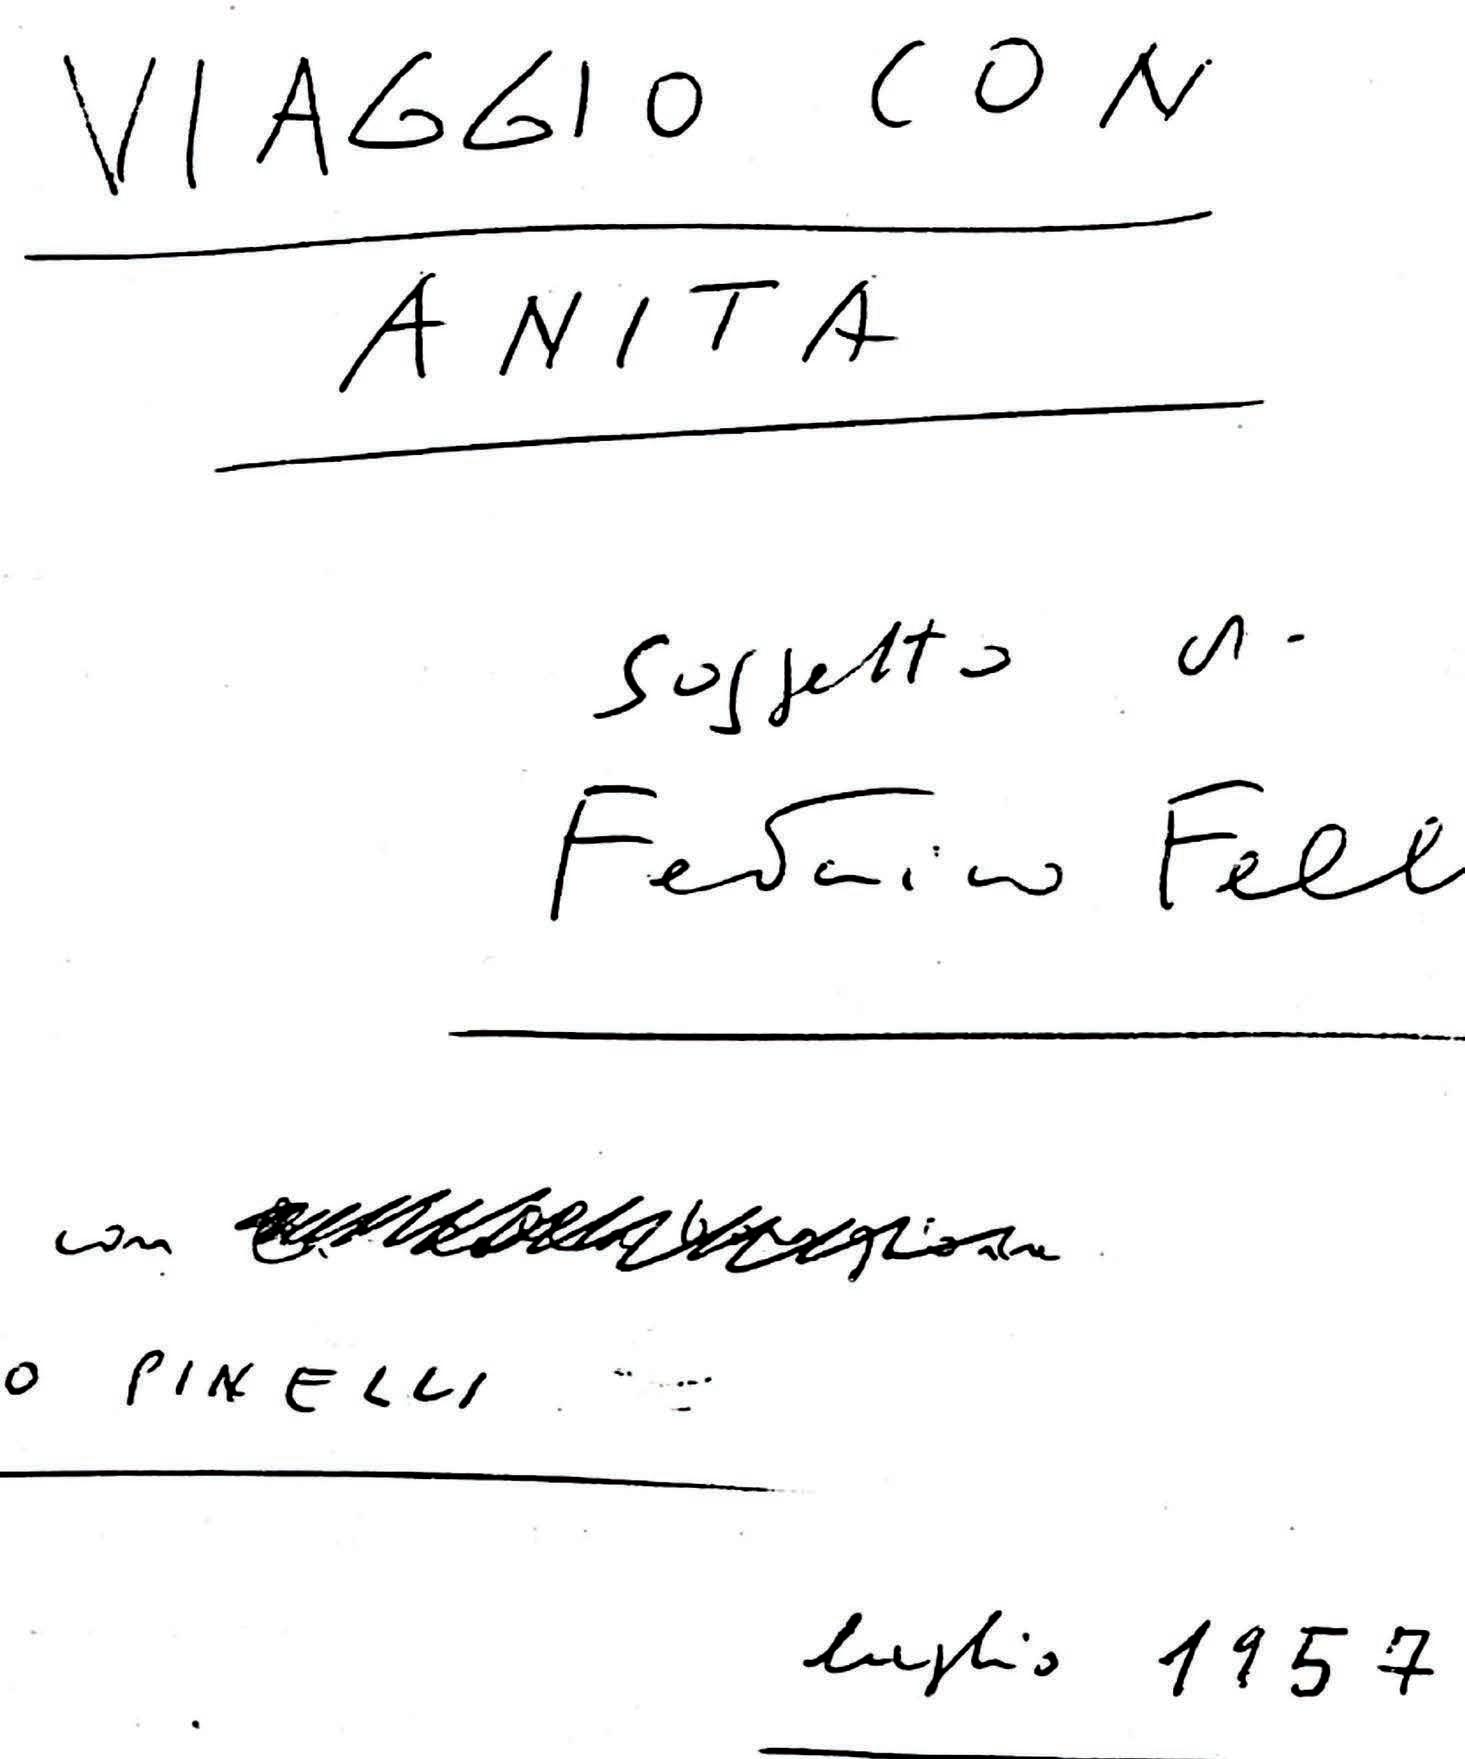 VIAGGIO CON
ANITA
Soggetto di
Federico Fell
con
O PINELLI
luglio 1957